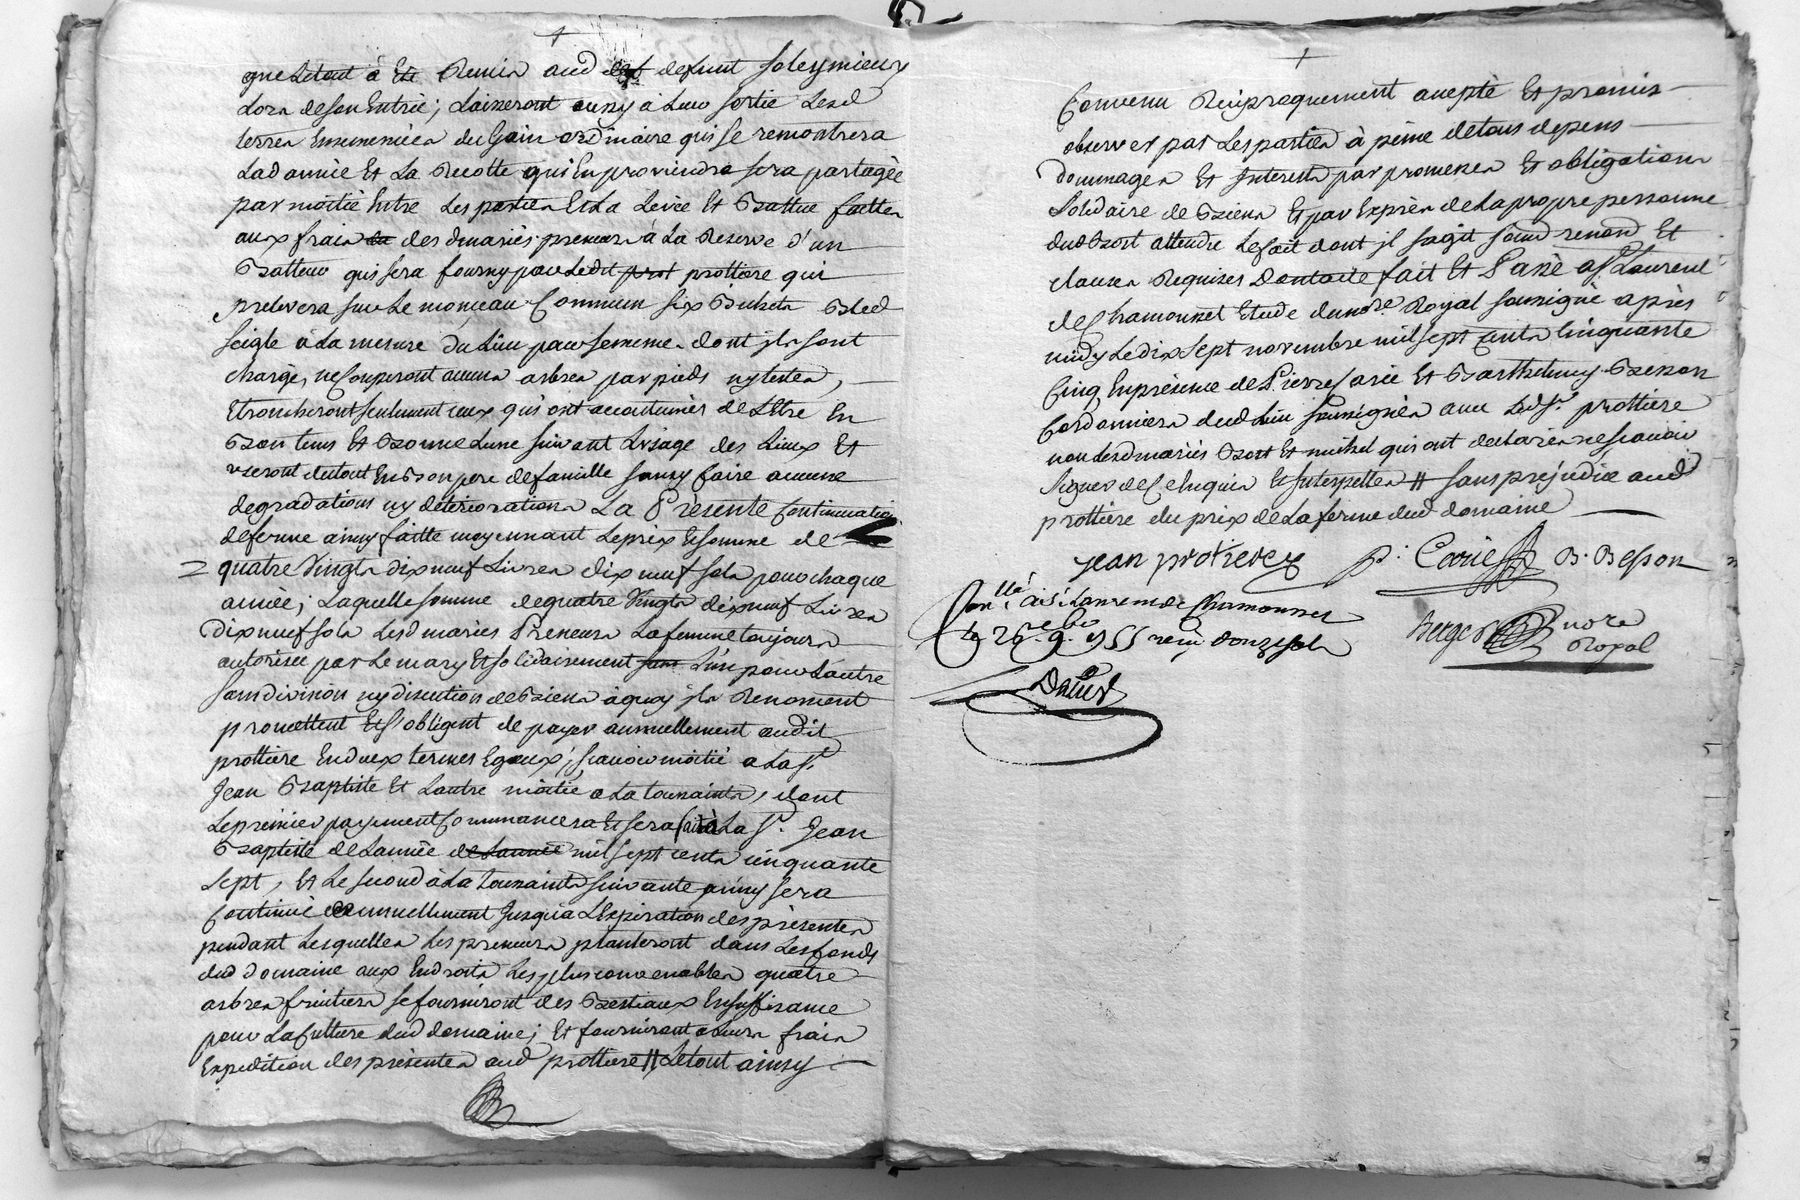 que Letout á Eté Remis aud deffunt soleymieux
Lors deson Entrée; Laisseront aussy á Leur sortie Lesd
terres Ensemencées du Grain ordinaire qui se remontrera
Lad année Et La Recolte qui En proviendra sera partagée
par moitié Entre Les parties Et La Levée Et Battue faittes
aux frais des dmariés preneurs á La Reserve d'un
Batteur qui sera fourny par Ledit prottiere qui
prelevera sur Le monceau Commun six Bichets Bled
seigle á La mesure du Lieu pour semence dont ils sont
chargés, ne Couperont aucuns arbres par pieds ny testes,
Etroncheront seulement ceux qui ont accoutumés de Létre En
Bon tems Et Bonne Lune suivant Lusage des Lieux Et
useront dutout En Bon pere defamille sans y faire aucune
degradations ny déteriorations La Présente Continuation
deferme ainsy faitte moyennant Leprix Et somme de
quatre Vingts dix neuf Livres dix neuf sols pour chaque
année; Laquelle somme de quatre Vingts dix neuf Livres
dix neuf sols Lesd mariés Preneurs La femme toujours
autorisée par Le mary Et solidairement L'un pour Lautre
sans division ny discution de Biens á quoy ils Renoncent
promettent Et s'obligent de payer annuellement audit
prottiere En deux termes Egaux; scavoir moitié a La St
Jean Baptiste Et Lautre moitié a La toussaints, dont
Le premier payement Commancera Et sera fait á La St Jean
Baptiste de Lannée de Lannée mil sept cents cinquante
sept, Et Le second á La toussaints suivante ainsy sera
Continué annuellement Jusqu'a L'Expiration des présentes
pendant Lesquelles Les preneurs planteront dans Les fonds
dud domaine aux Endroits Les plus convenables quatre
arbres fruitiers se fourniront des Bestiaux En suffisance
pour La Culture dud domaine; Et fourniront a Leurs frais
Expedition des présentes aud prottiere // Le tout ainsy
Convenu Reciproquement accepté Et promis
observer par Les parties á peine de tous depens
dommages Et Interests par promesses Et obligations
solidaire de Biens Et par Exprès de La propre personne
dud Bost attendu Le fait dont il sagit sous renond Et
clauses Requises Dontacte fait Et Passé a St Laurent
de Chamousset Etude du nore Royal soussigné après
midy Le dix Sept novembre mil sept cents Cinquante
Cinq En présence de Pierre Carié Et Barthelemy Besson
Cordonniers dud Lieu soussignés avec Led Sr prottiere
non Lesd mariés Bost Et michel qui ont declarés ne scavoir
signer de Ce Enquis Et Interpellés // sans prejudice aud
prottiere du prix de La ferme dud domaine
jean protiere
p: Carié B. Besson
Conllé á St Laurent de Chamousset
Le 26 9bre 1755 reçu donze sols
nore
Royal